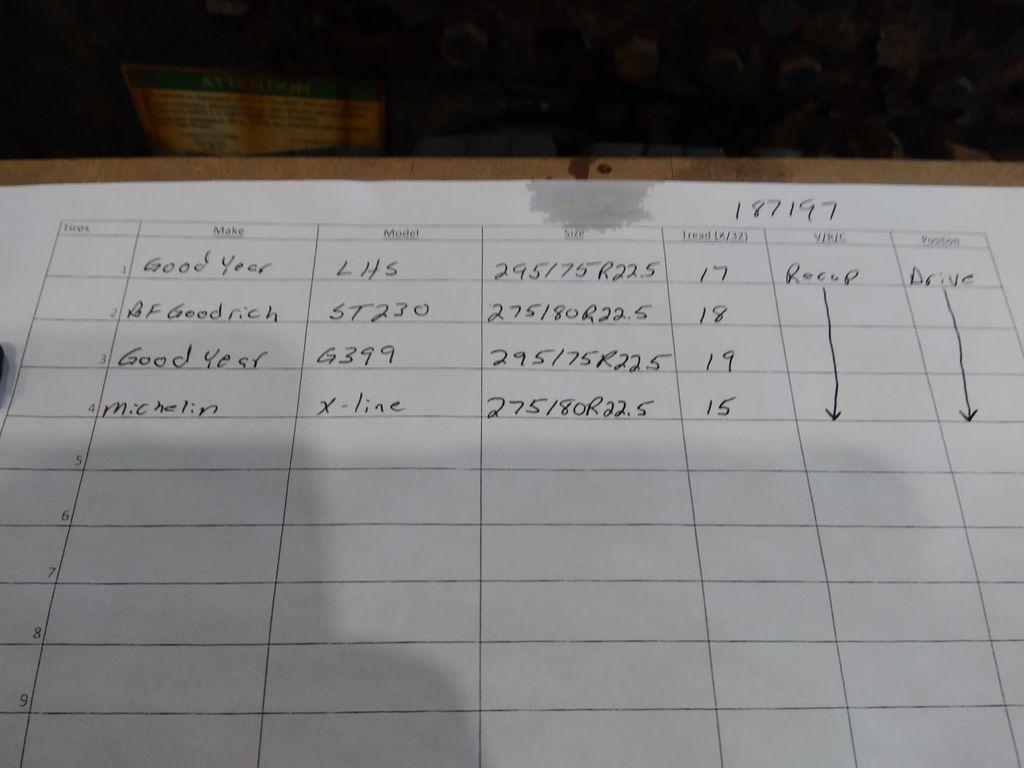 ATTENTION
187197
Tires Make Model Size Tread (X/32) V/R/C Position
1 Good Year LHS 295/75R22.5 17 Recap Drive
2 BF Goodrich ST230 275/80R22.5 18
3 Good Year G399 295/75R22.5 19
4 Michelin X-line 275/80R22.5 15
5
6
7
8
9